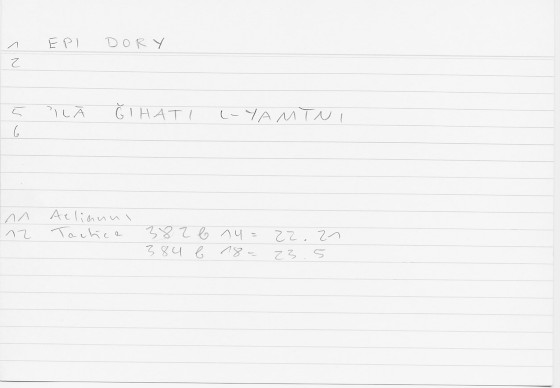 1 EPI DORY
2
5 ʾILĀ ǦIHATI L-YAMĪNI
6
11 Aelianus
12 Tactica 382 b 14 = 22.21
384 b 18 = 23.5